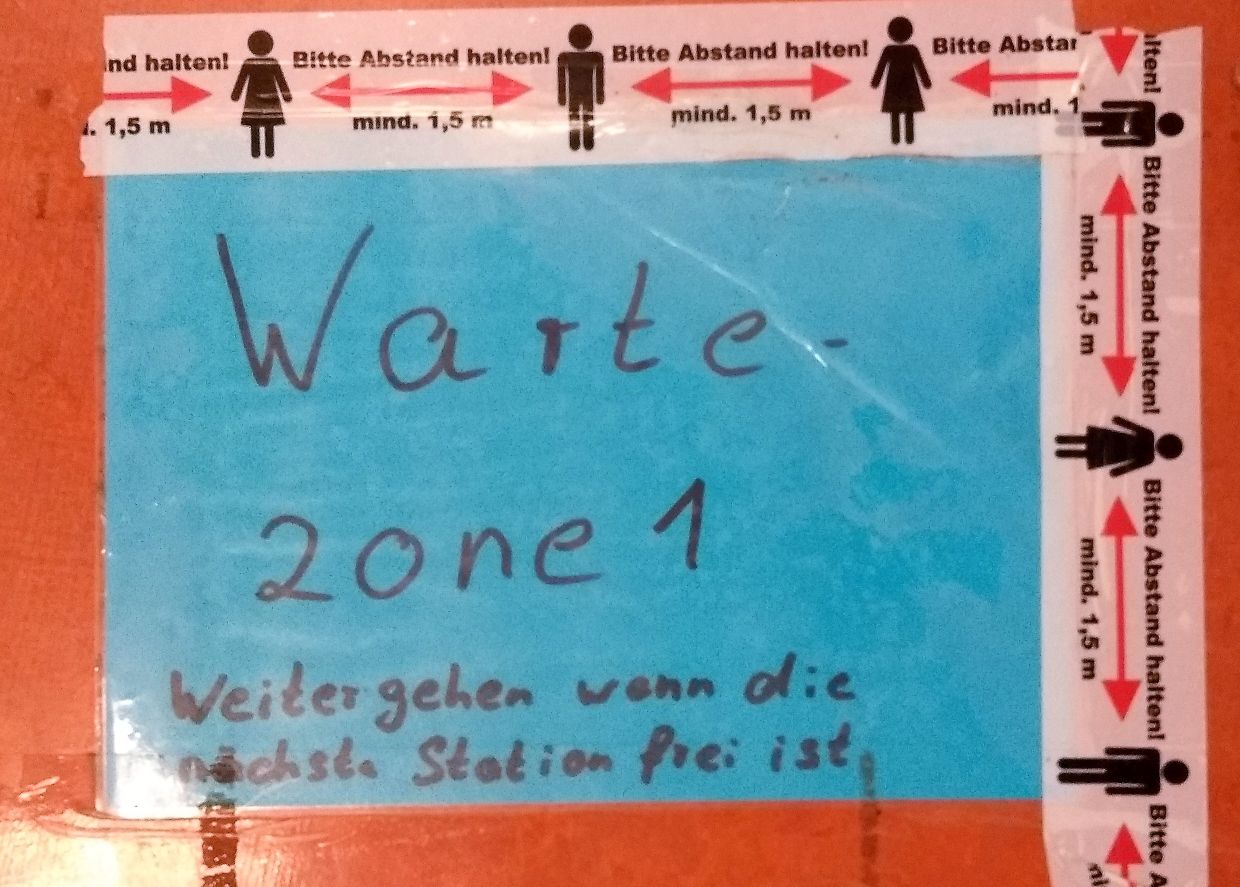 nd halten! Bitte Abstand halten! Bitte Abstand halten! Bitte Abstan
. 1,5 m mind. 1,5 m mind. 1,5 m mind. 1
Warte-
zone 1
Weitergehen wenn die
nächste Station frei ist
lten! Bitte Abstand halten! Bitte Abstand halten! Bitte A
mind. 1,5 m mind. 1,5 m mi